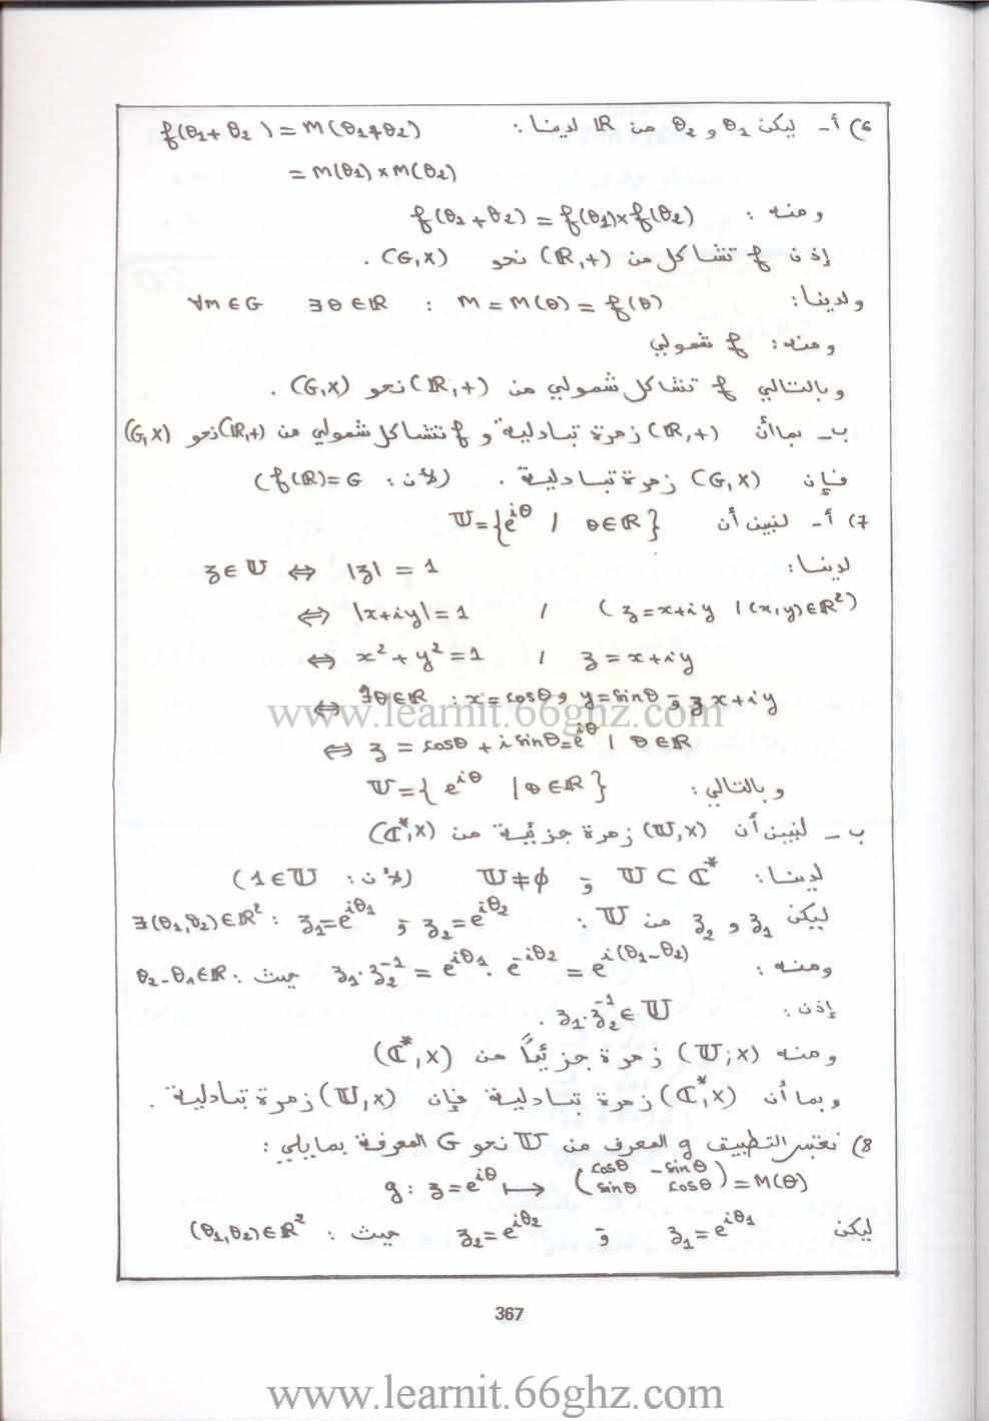 6) أ- ليكن θ₁ و θ₂ من ℝ لدينا : f(θ₁+θ₂) = M(θ₁+θ₂)
= M(θ₁) × M(θ₂)
ومنه : f(θ₁+θ₂) = f(θ₁)×f(θ₂)
إذن f تشاكل من (ℝ,+) نحو (G,×) .
ولدينا: ∀m ∈ G ∃θ ∈ ℝ : M = M(θ) = f(θ)
ومنه: f شمولي
وبالتالي f تشاكل شمولي من (ℝ,+) نحو (G,×) .
ب- بما أن (ℝ,+) زمرة تبادلية و f تشاكل شمولي من (ℝ,+) نحو (G,×)
فإن (G,×) زمرة تبادلية . (لأن : f(ℝ)=G)
7) أ- لنبين أن 𝕌={e^{iθ} / θ∈ℝ}
لدينا: z ∈ 𝕌 ⇔ |z| = 1
⇔ |x+iy|=1 / (z=x+iy / (x,y)∈ℝ²)
⇔ x²+y²=1 / z=x+iy
⇔ ∃θ∈ℝ : x=cosθ و y=sinθ و z x+iy
www.learnit.66ghz.com
⇔ z = cosθ + i sinθ=e^{iθ} / θ∈ℝ
وبالتالي : 𝕌={ e^{iθ} / θ∈ℝ}
ب - لنبين أن (𝕌,×) زمرة جزئية من (ℂ*,×)
لدينا: 𝕌 ⊂ ℂ* و 𝕌≠∅ (لأن : 1∈𝕌)
ليكن z₁ و z₂ من 𝕌 : ∃(θ₁,θ₂)∈ℝ² : z₁=e^{iθ₁} و z₂=e^{iθ₂}
ومنه : z₁.z₂⁻¹ = e^{iθ₁}.e^{-iθ₂} = e^{i(θ₁-θ₂)} حيث : θ₂-θ₁∈ℝ
إذن : z₁.z₂⁻¹∈ 𝕌 .
ومنه (𝕌;×) زمرة جزئياً من (ℂ*,×)
وبما أن (ℂ*,×) زمرة تبادلية فإن (𝕌,×) زمرة تبادلية .
8) نعتبر التطبيق g المعرف من 𝕌 نحو G المعرفة بما يلي :
g : z=e^{iθ} ⟼ (cosθ -sinθ
sinθ cosθ) = M(θ)
ليكن z₁=e^{iθ₁} و z₂=e^{iθ₂} حيث : (θ₁,θ₂)∈ℝ²
367
www.learnit.66ghz.com